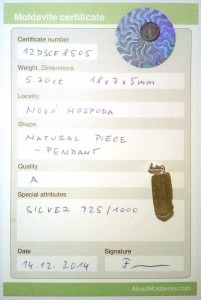 Moldavite certificate
Certificate number
12DSCF8505
Weight, Dimensions
5.70ct 18x7x5mm
Locality
NOVÁ HOSPODA
Shape
NATURAL PIECE
- PENDANT
Quality
A
Special attributes
SILVER 925/1000
Date
Signature
14.12.2014
AboutMoldavites.com